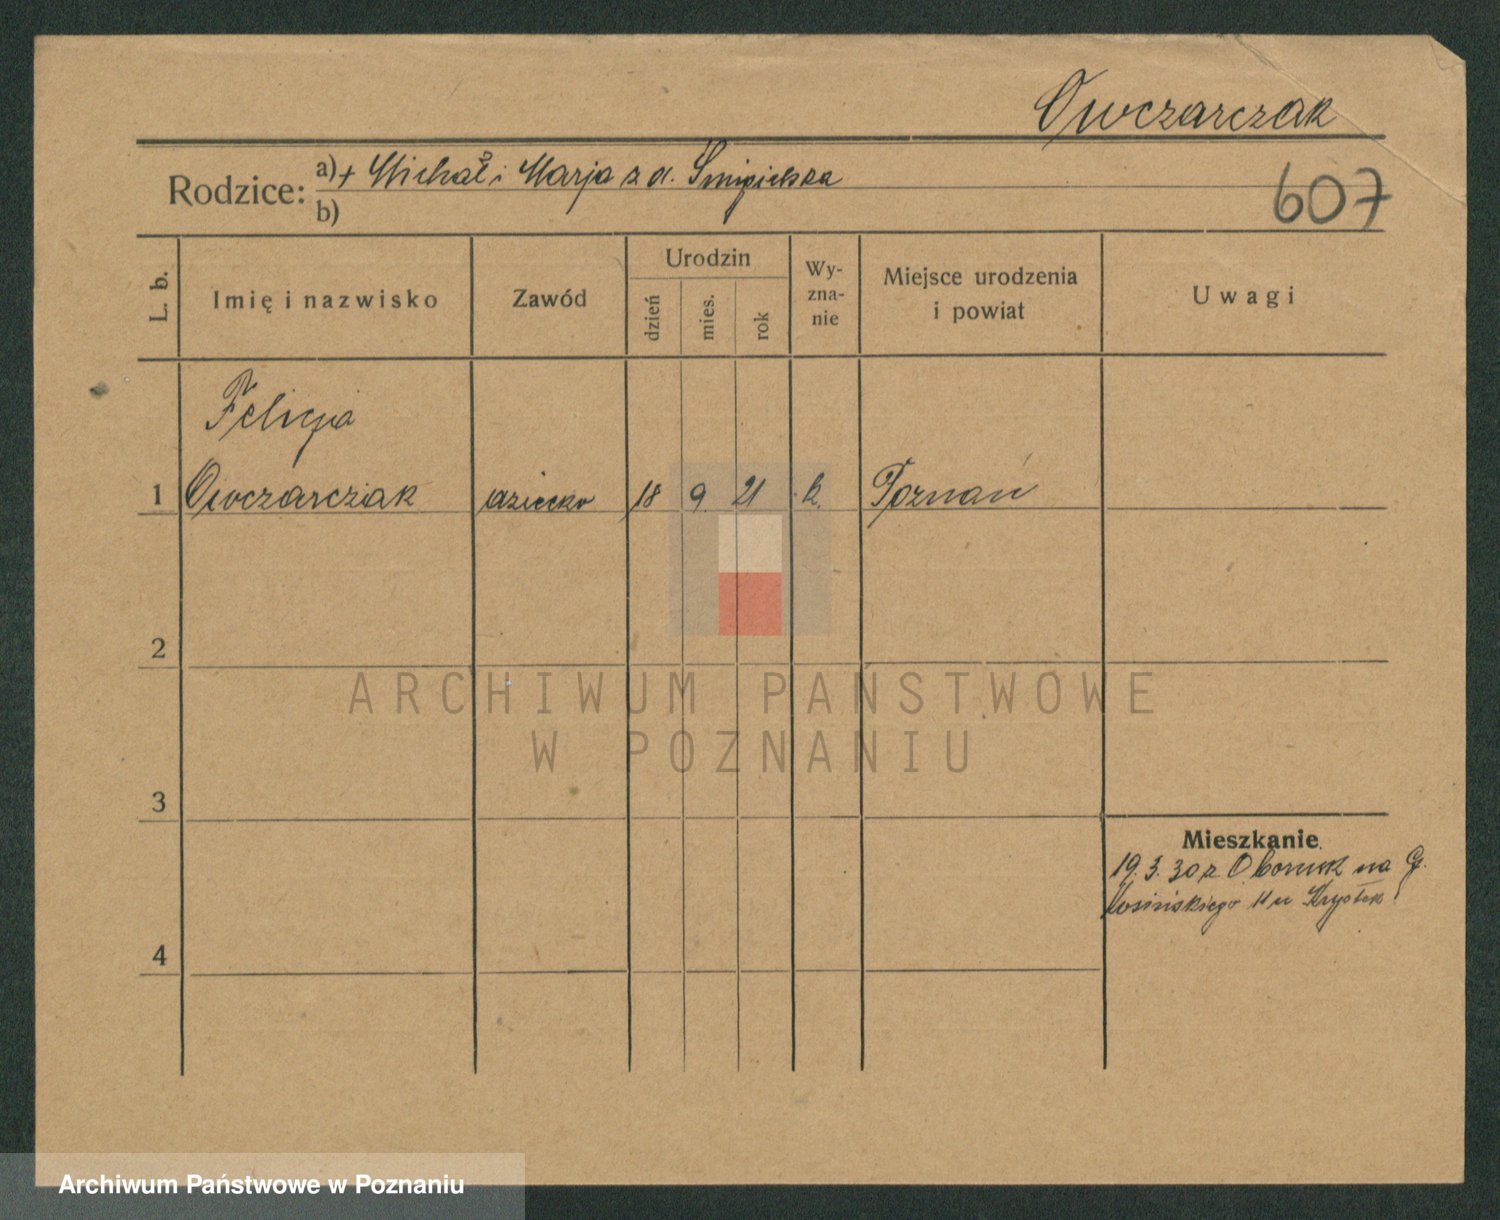 Owczarczak
Rodzice: a) + Michał i Marja z d. Śmigielska
b)
607
L. b.
Imię i nazwisko
Zawód
Urodzin
dzień
mies.
rok
Wy-
zna-
nie
Miejsce urodzenia
i powiat
Uwagi
Felicja
1 Owczarczak dziecko 18 9. 21 k. Poznań
2
ARCHIWUM PAŃSTWOWE
W POZNANIU
3
Mieszkanie
19. 3. 30 z Obornik na G.
Kosińskiego 11 u Krystek
4
Archiwum Państwowe w Poznaniu